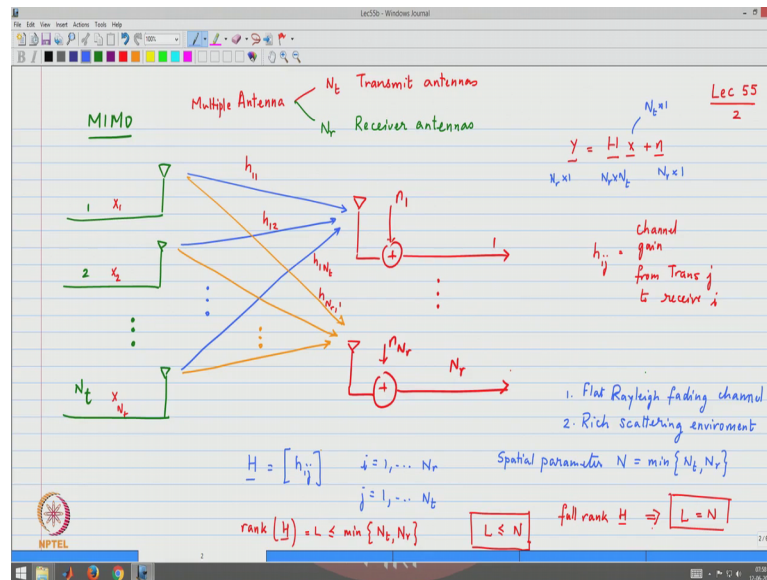 Lec55b - Windows Journal
File Edit View Insert Actions Tools Help
100%
B I
MIMO
Multiple Antenna
Nt Transmit antennas
Nr Receiver antennas
Lec 55
2
Nt×1
Y = H x + n
Nr×1 Nr×Nt Nr×1
1 x1
2 x2
Nt xNr
h11
h12
h1Nt
hNr,1
n1
+
1
nNr
+
Nr
hij = channel
gain
from Trans j
to receive i
1. Flat Rayleigh fading channel
2. Rich scattering enviroment
H = [hij] i = 1, ... Nr
j = 1, ... Nt
Spatial parameter N = min {Nt, Nr}
rank (H) = L ≤ min {Nt, Nr}
L ≤ N
full rank H ⇒ L = N
NPTEL
2